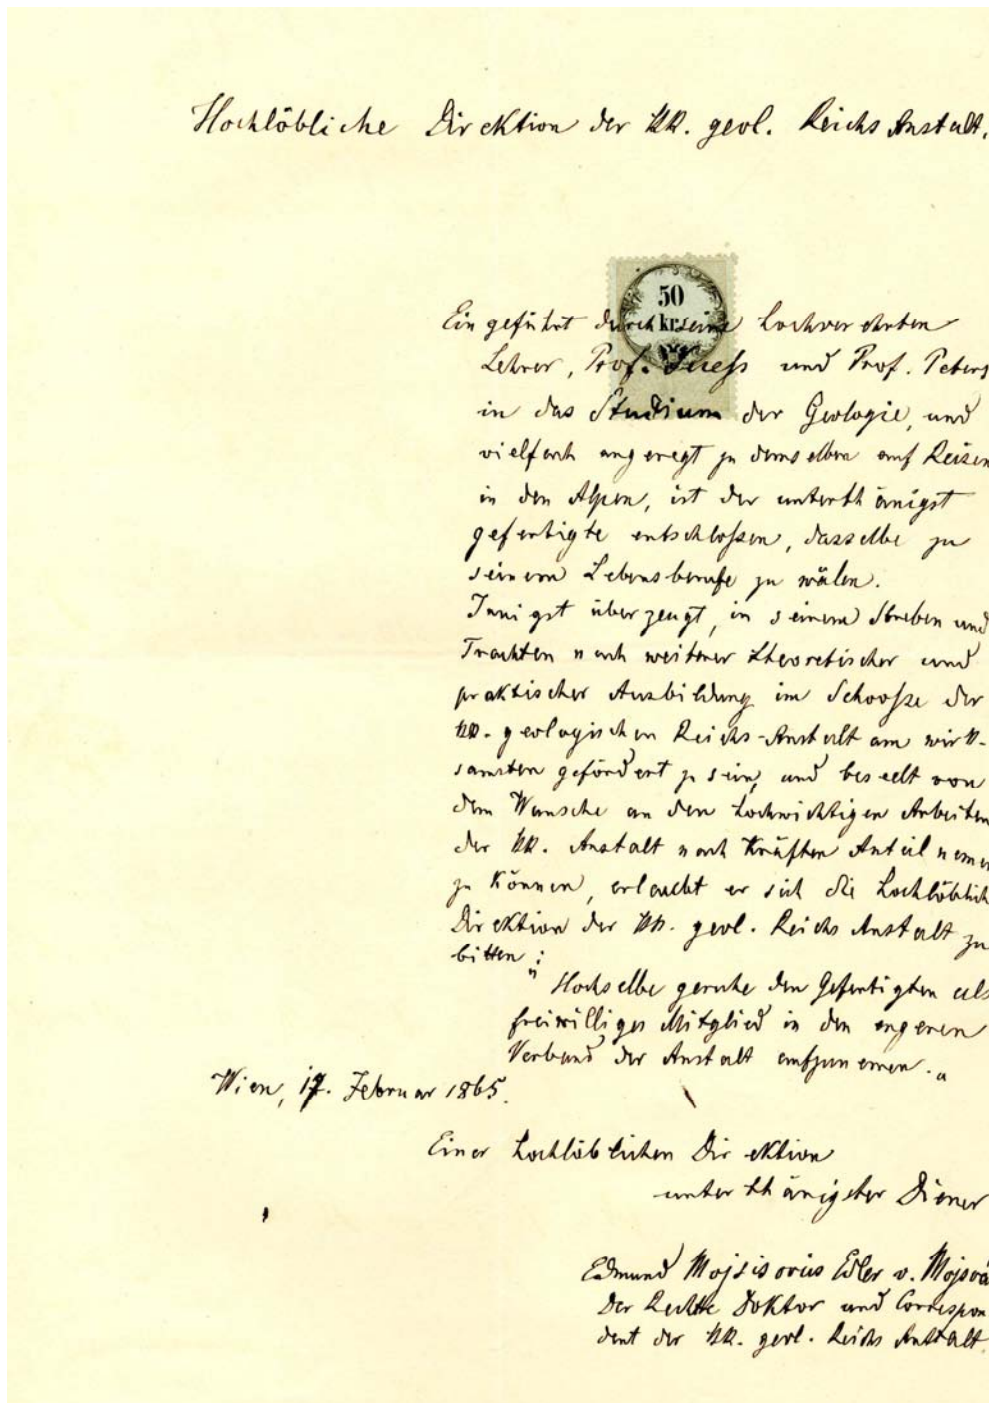 Hochlöbliche Direktion der kk. geol. Reichs Anstalt.
50
kr.
Eingeführt durch seine hochverehrten
Lehrer, Prof. Suess und Prof. Peters
in das Studium der Geologie, und
vielfach angeregt zu demselben auf Reisen
in den Alpen, ist der unterthänigst
gefertigte entschlossen, dasselbe zu
seinem Lebensberufe zu wälen.
Innigst überzeugt, in seinem Streben und
Trachten nach weiterer theoretischer und
praktischer Ausbildung im Schoosse der
kk. geologischen Reichs-Anstalt am wirk-
samsten gefördert zu sein, und beseelt von
dem Wunsche an den hochwichtigen Arbeiten
der kk. Anstalt nach Kräften Anteil nemen
zu können, erlaubt er sich die Hochlöblich
Direktion der kk. geol. Reichs Anstalt zu
bitten:
„Hochselbe geruhe den Gefertigten als
freiwilliges Mitglied in den engeren
Verband der Anstalt aufzunemen."
Wien, 17. Februar 1865.
Einer hochlöblichen Direktion
unterthänigster Diener
Edmund Mojsisovics Edler v. Mojsvá
Der Rechte Doktor und Correspon
dent der kk. geol. Reichs Anstalt.